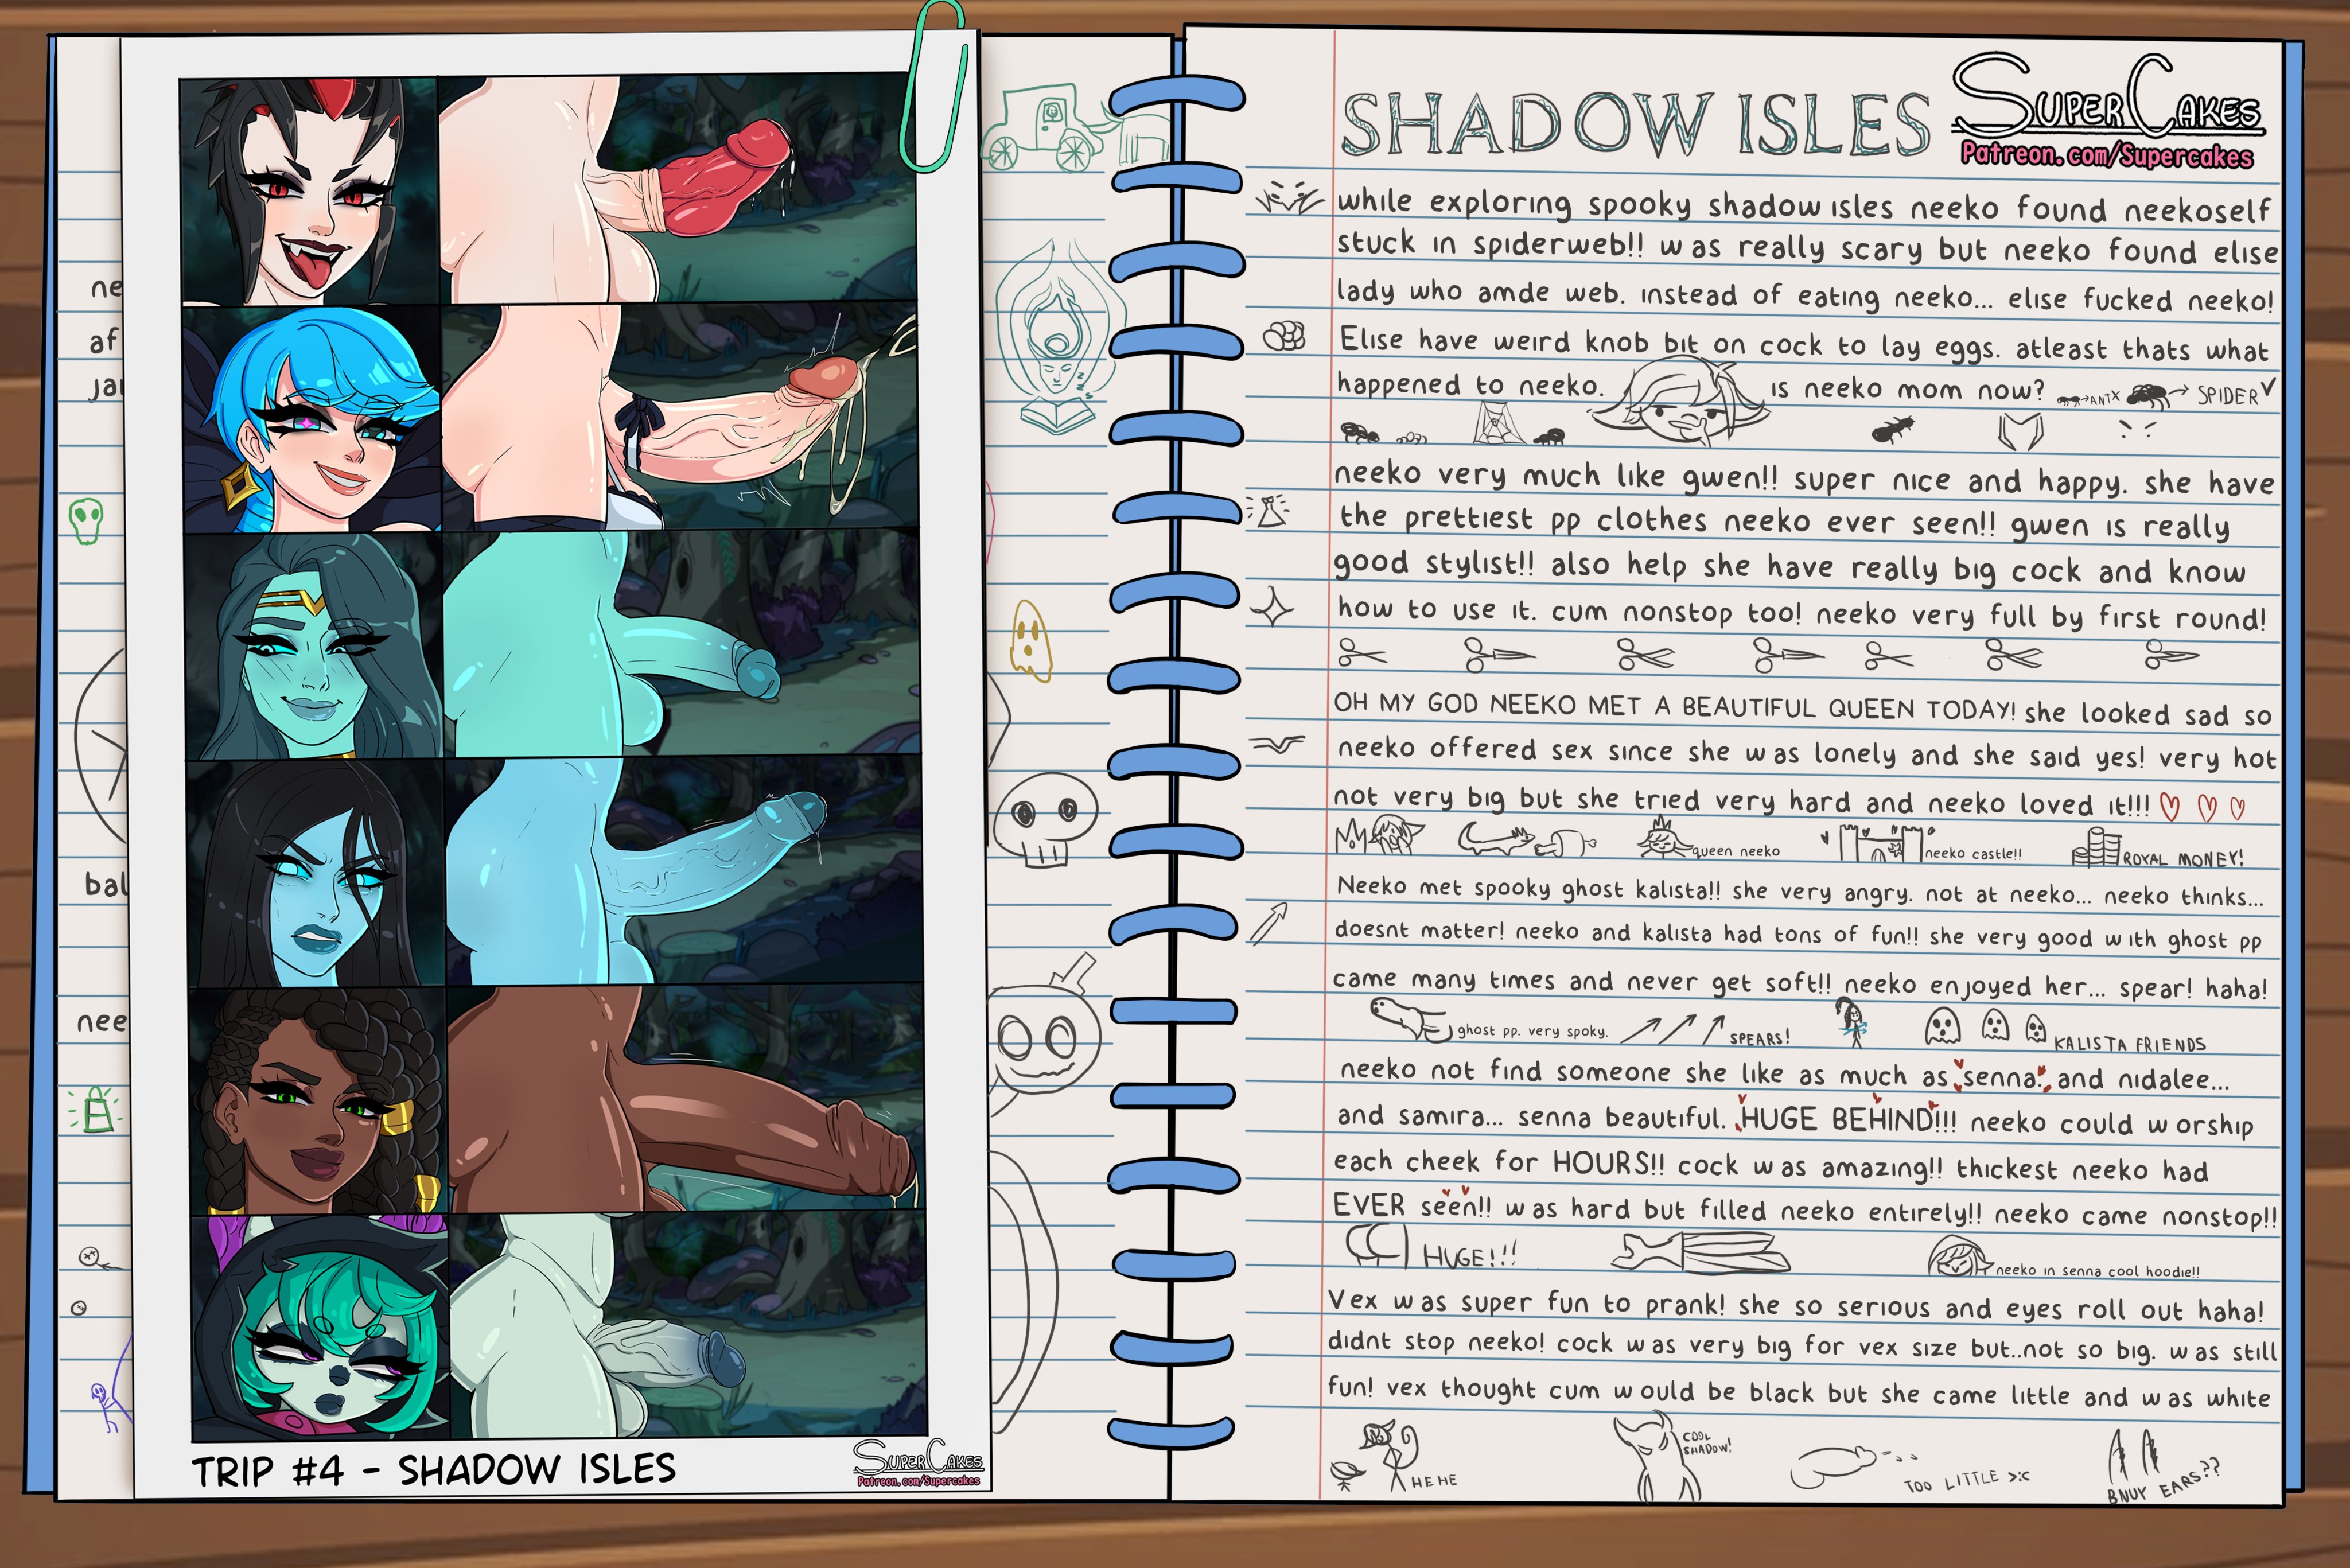 ne
af
jar
bal
nee
TRIP #4 - SHADOW ISLES
SUPERCAKES
Patreon.com/Supercakes
SHADOW ISLES
SUPERCAKES
Patreon.com/Supercakes
while exploring spooky shadow isles neeko found neekoself
stuck in spiderweb!! was really scary but neeko found elise
lady who amde web. instead of eating neeko... elise fucked neeko!
Elise have weird knob bit on cock to lay eggs. atleast thats what
happened to neeko. is neeko mom now? →ANT X → SPIDER ✓
neeko very much like gwen!! super nice and happy. she have
the prettiest pp clothes neeko ever seen!! gwen is really
good stylist!! also help she have really big cock and know
how to use it. cum nonstop too! neeko very full by first round!
OH MY GOD NEEKO MET A BEAUTIFUL QUEEN TODAY! she looked sad so
neeko offered sex since she was lonely and she said yes! very hot
not very big but she tried very hard and neeko loved it!!! ♡ ♡ ♡
queen neeko neeko castle!! ROYAL MONEY!
Neeko met spooky ghost kalista!! she very angry. not at neeko... neeko thinks...
doesnt matter! neeko and kalista had tons of fun!! she very good with ghost pp
came many times and never get soft!! neeko enjoyed her... spear! haha!
ghost pp. very spoky. SPEARS! KALISTA FRIENDS
neeko not find someone she like as much as senna. and nidalee...
and samira... senna beautiful. HUGE BEHIND!!! neeko could worship
each cheek for HOURS!! cock was amazing!! thickest neeko had
EVER seen!! was hard but filled neeko entirely!! neeko came nonstop!!
HUGE!!! neeko in senna cool hoodie!!
Vex was super fun to prank! she so serious and eyes roll out haha!
didnt stop neeko! cock was very big for vex size but..not so big. was still
fun! vex thought cum would be black but she came little and was white
HEHE COOL SHADOW! TOO LITTLE >:c BNUY EARS??